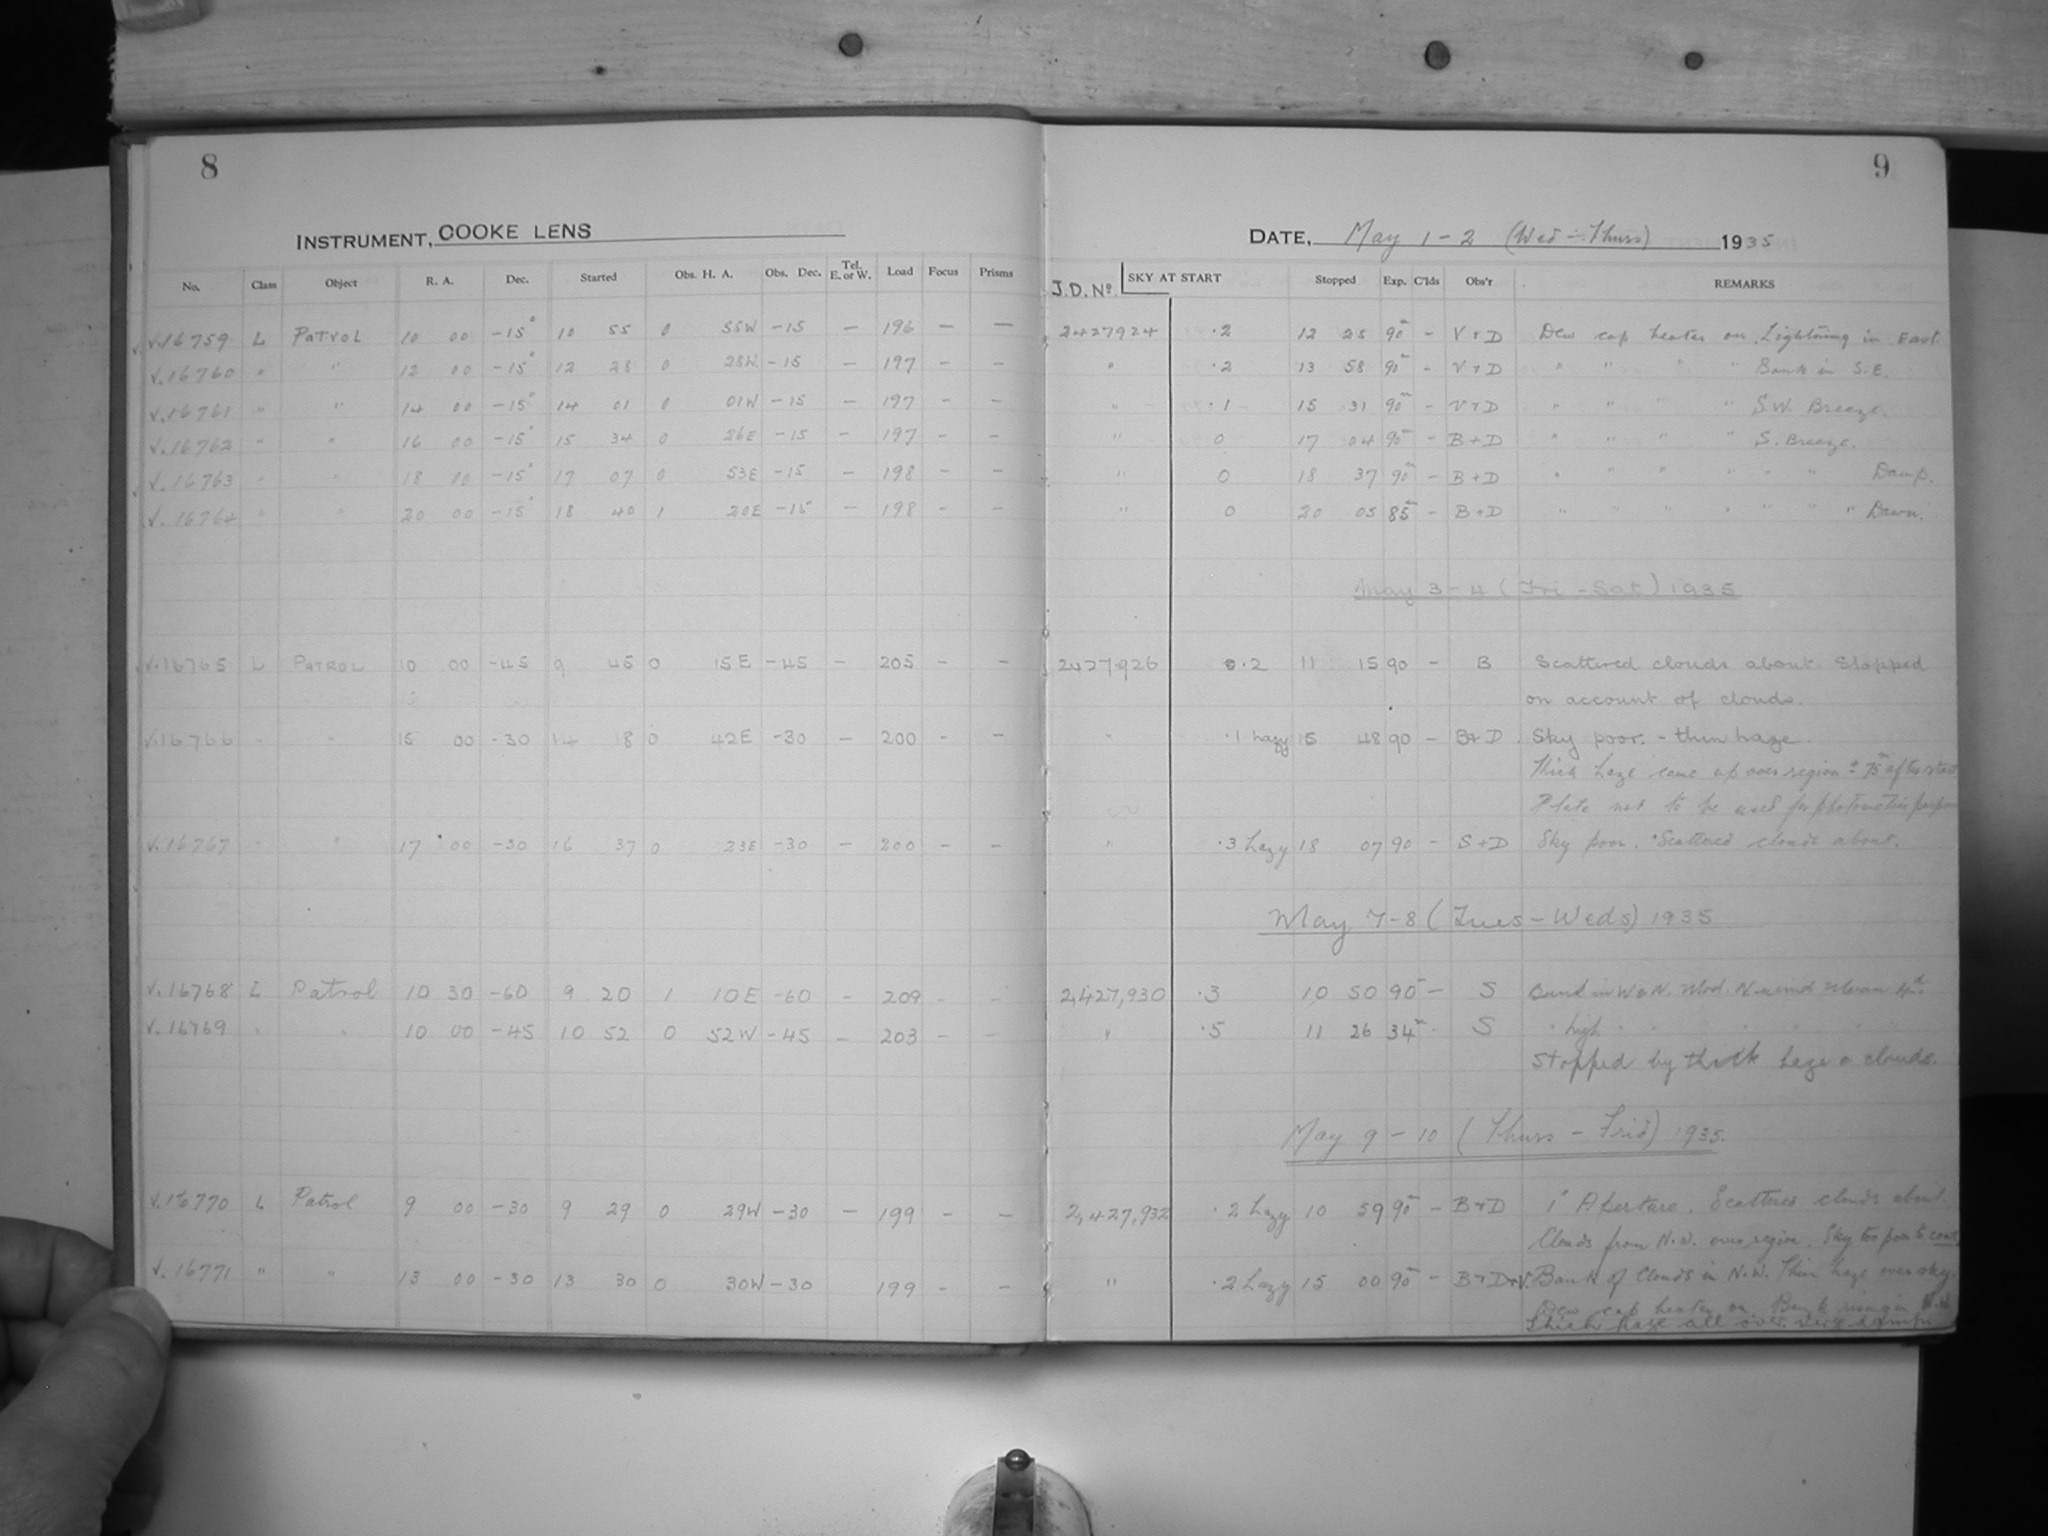 8
9
INSTRUMENT, COOKE LENS
DATE, May 1-2 (Wed - Thurs) 1935
No. Class Object R. A. Dec. Started Obs. H. A. Obs. Dec. Tel. E. or W. Load Focus Prisms J.D. No. SKY AT START Stopped Exp. C'lds Obs'r REMARKS
V.16759 L PATROL 10 00 -15° 10 55 0 55W -15 — 196 — — 2427924 .2 12 25 90m - V+D Dew cap heater on. Lightning in East.
V.16760 " " 12 00 -15° 12 28 0 28W -15 — 197 — — " .2 13 58 90m - V+D " " " " Bank in S.E.
V.16761 " " 14 00 -15° 14 01 0 01W -15 — 197 — — " .1 15 31 90m - V+D " " " " S.W. Breeze.
V.16762 " " 16 00 -15° 15 34 0 26E -15 — 197 — — " 0 17 04 90m - B+D " " " " S. Breeze.
V.16763 " " 18 00 -15° 17 07 0 53E -15 — 198 — — " 0 18 37 90m - B+D " " " " " " Damp.
V.16764 " " 20 00 -15° 18 40 1 20E -15 — 198 — — " 0 20 05 85m - B+D " " " " " " " Dawn.
May 3-4 (Fri - Sat) 1935
V.16765 L PATROL 10 00 -45 9 45 0 15E -45 - 205 - - 2427926 0.2 11 15 90 - B Scattered clouds about. Stopped
on account of clouds.
V.16766 " " 15 00 -30 14 18 0 42E -30 - 200 - - " .1 hazy 15 48 90 - B+D. Sky poor. - thin haze.
Thick haze came up over region ± 75m after start
Plate not to be used for photometric
V.16767 " " 17 00 -30 16 37 0 23E -30 - 200 - - " .3 hazy 18 07 90 - S+D Sky poor. Scattered clouds about.
May 7-8 (Tues - Weds) 1935
V.16768 L Patrol 10 30 -60 9 20 1 10E -60 - 209 - - 2,427,930 .3 10 50 90m - S Bank in W & N. Mod. N. wind Moon 4d.
V.16769 " " 10 00 -45 10 52 0 52W -45 - 203 - - " .5 11 26 34m - S " high " " " " "
Stopped by thick haze & clouds.
May 9-10 (Thurs - Frid) 1935.
V.16770 L Patrol 9 00 -30 9 29 0 29W -30 — 199 - — 2,427,932 .2 hazy 10 59 90m - B+D 1" Aperture. Scattered clouds about.
Clouds from N.W. over region. Sky too poor to cont.
V.16771 " " 13 00 -30 13 30 0 30W -30 199 - — " .2 hazy 15 00 90m - B+D+V. Bank of Clouds in N.W. Thin haze over sky.
Dew cap heater on. Bank rising in
thick haze all over. Very damp.